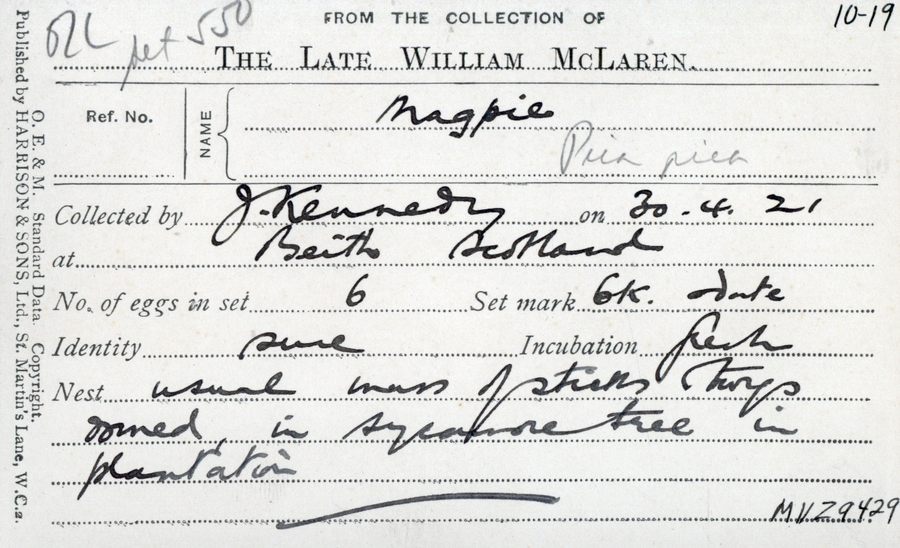 FROM THE COLLECTION OF 10-19
set 550
THE LATE WILLIAM McLAREN.
Ref. No. NAME Magpie
Pica pica
Collected by J. Kennedy on 30.4.21
at Beith Scotland
No. of eggs in set 6 Set mark 6K. date
Identity sure Incubation fresh
Nest usual mass of sticks twigs
domed, in sycamore tree in
plantation
MVZ9429
O. E. & M. Standard Data. Copyright.
Published by HARRISON & SONS, Ltd., St. Martin's Lane, W.C.2.